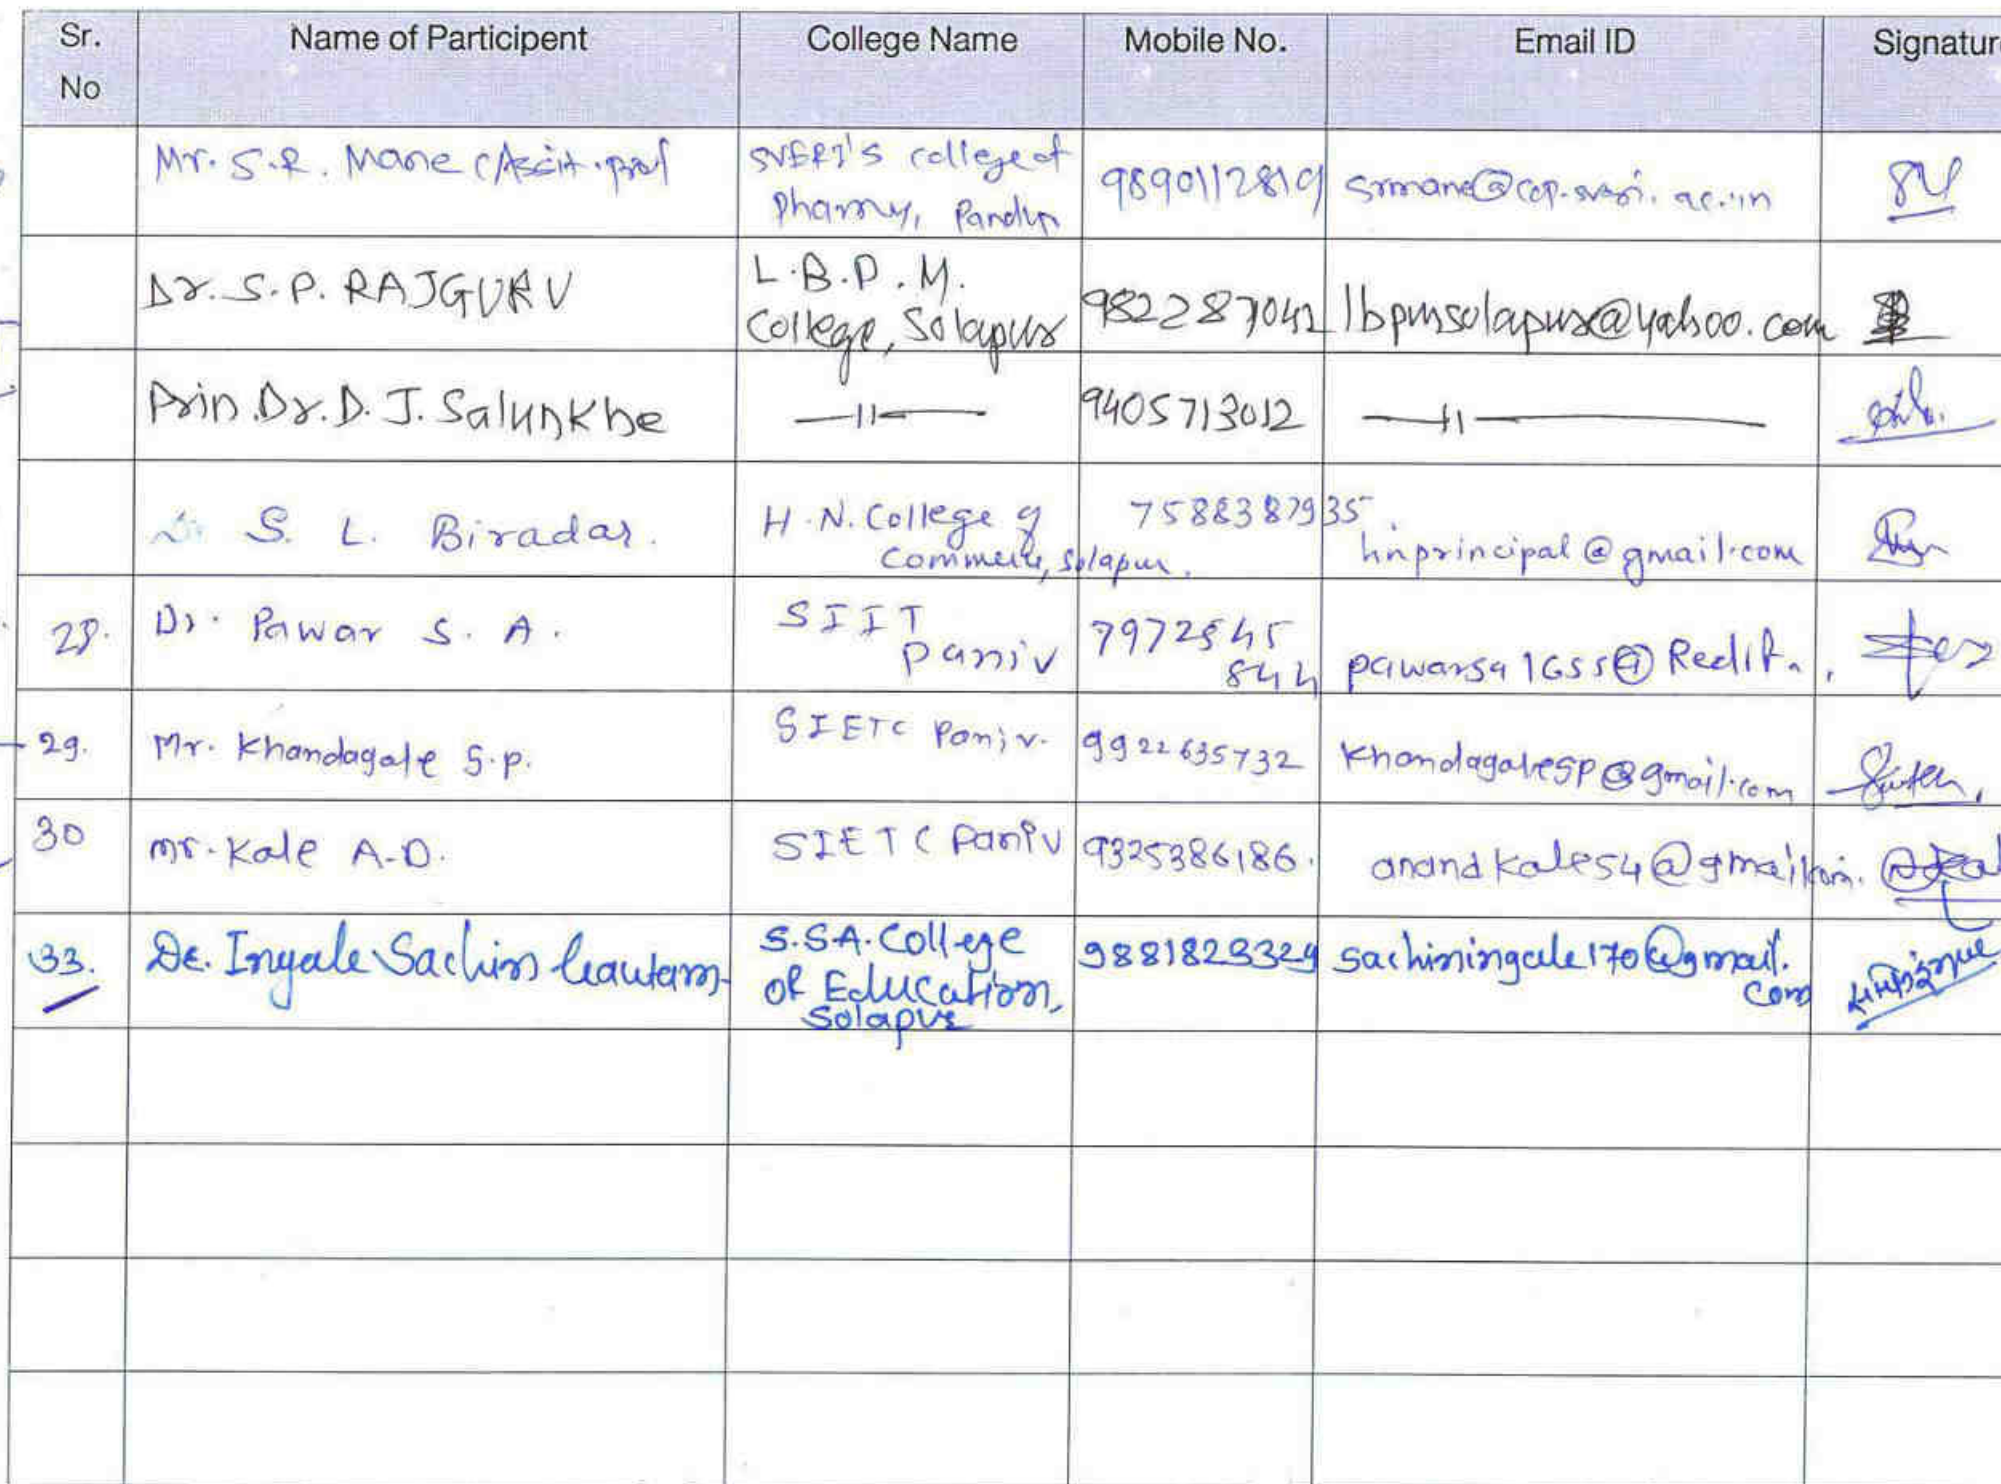 Sr. No
Name of Participent
College Name
Mobile No.
Email ID
Signatur
Mr. S.R. Mane (Assit. prof
SVERI's college of
Pharmy, Pandhp
9890112819
srmane@cop.sveri.ac.in
Dr. S.P. RAJGURU
L.B.P.M.
College, Solapur
9822287042
lbpmsolapur@yahoo.com
Prin. Dr. D. J. Salunkhe
—11—
9405713012
—11—
Dr. S. L. Biradar.
H.N. College of
Commerce, Solapur.
7588387935
hnprincipal@gmail.com
28.
Dr. Pawar S. A.
SIIT
Paniv
7972545
844
pawarsa1655@Rediff.
29.
Mr. Khandagale S.p.
SIETC Paniv.
9922635732
khandagalesp@gmail.com
30
mr. Kale A.D.
SIETC Paniv
9325386186.
anandkale54@gmail.com.
33.
Dr. Ingale Sachin Gautam
S.S.A. College
of Education,
Solapur
9881823324
sachiningale170@gmail.
com